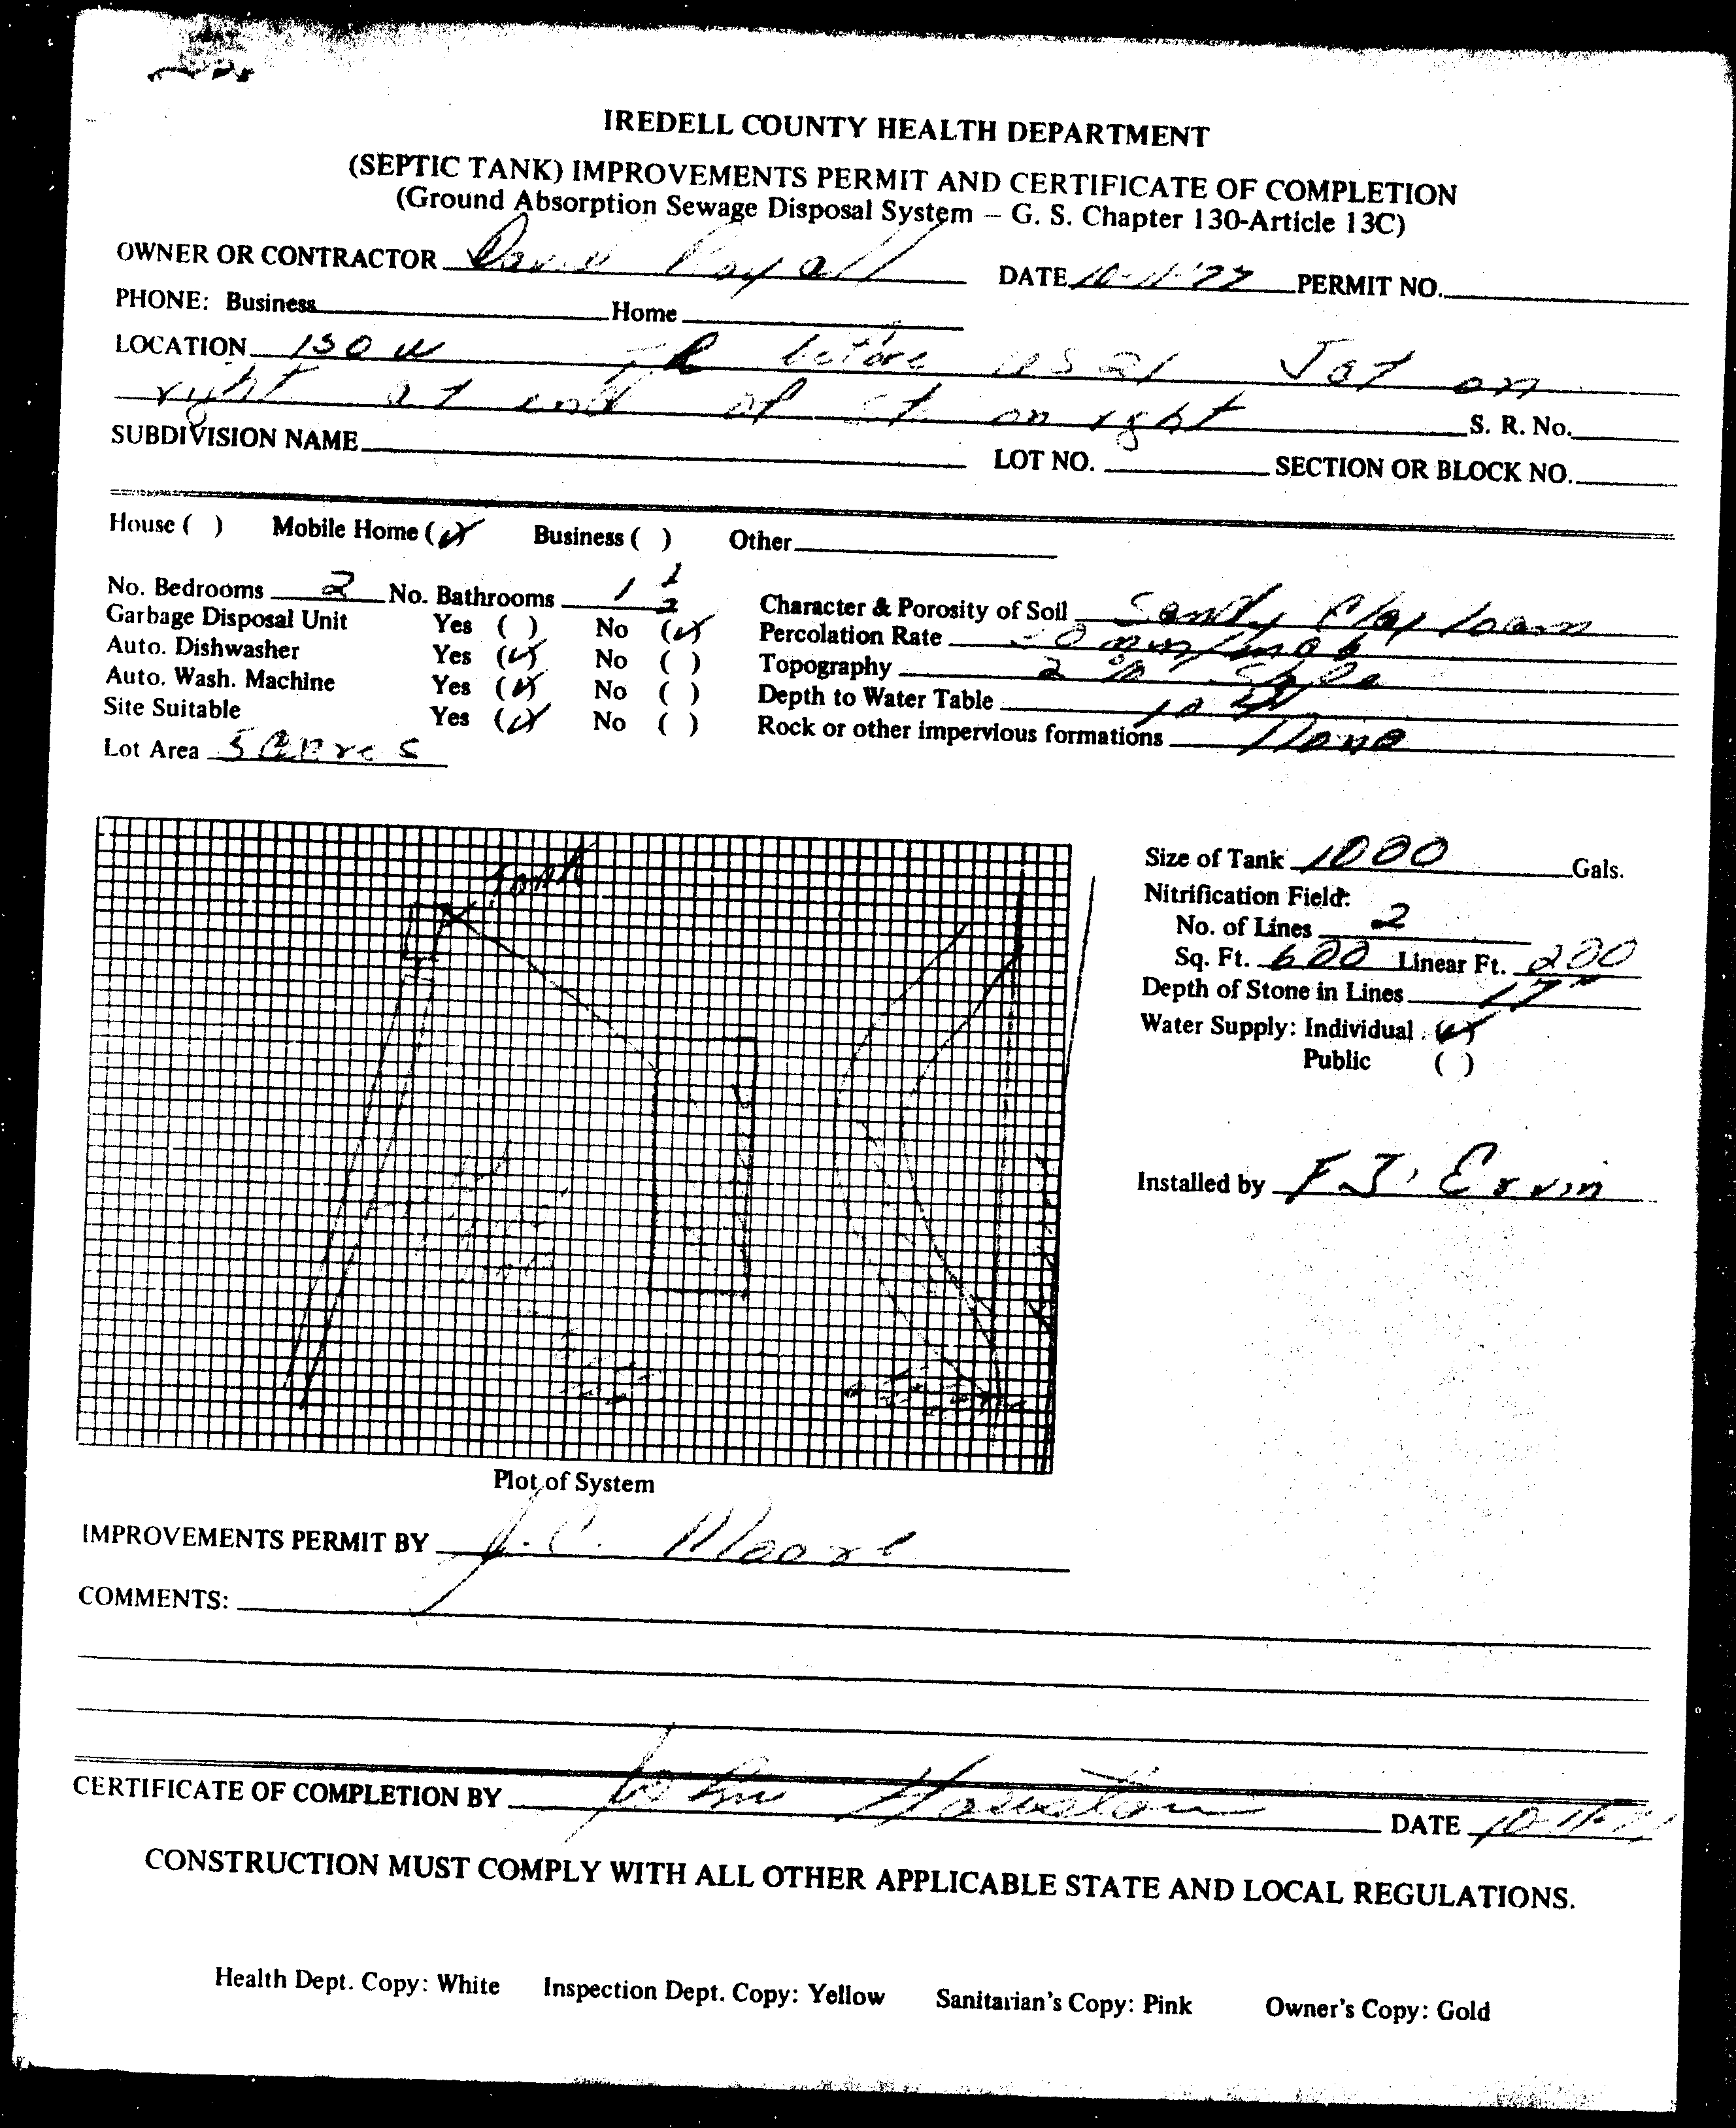 IREDELL COUNTY HEALTH DEPARTMENT
(SEPTIC TANK) IMPROVEMENTS PERMIT AND CERTIFICATE OF COMPLETION
(Ground Absorption Sewage Disposal System – G. S. Chapter 130-Article 13C)
OWNER OR CONTRACTOR David DATE 10-11-77 PERMIT NO.
PHONE: Business Home
LOCATION 150 W before US 21 on
right at end of on right S. R. No.
SUBDIVISION NAME LOT NO. SECTION OR BLOCK NO.
House ( ) Mobile Home (✓) Business ( ) Other
No. Bedrooms 2 No. Bathrooms 1 1/2 Character & Porosity of Soil Sandy Clay loam
Garbage Disposal Unit Yes ( ) No (✓) Percolation Rate min/inch
Auto. Dishwasher Yes (✓) No ( ) Topography 2 % Slope
Auto. Wash. Machine Yes (✓) No ( ) Depth to Water Table 10
Site Suitable Yes (✓) No ( ) Rock or other impervious formations None
Lot Area 5 acres
Tank
Size of Tank 1000 Gals.
Nitrification Field:
No. of Lines 2
Sq. Ft. 600 Linear Ft. 200
Depth of Stone in Lines
Water Supply: Individual (✓)
Public ( )
Installed by F J. Ervin
Plot of System
IMPROVEMENTS PERMIT BY J. C. Moore
COMMENTS:
CERTIFICATE OF COMPLETION BY John Houston DATE 10-11-77
CONSTRUCTION MUST COMPLY WITH ALL OTHER APPLICABLE STATE AND LOCAL REGULATIONS.
Health Dept. Copy: White Inspection Dept. Copy: Yellow Sanitarian's Copy: Pink Owner's Copy: Gold